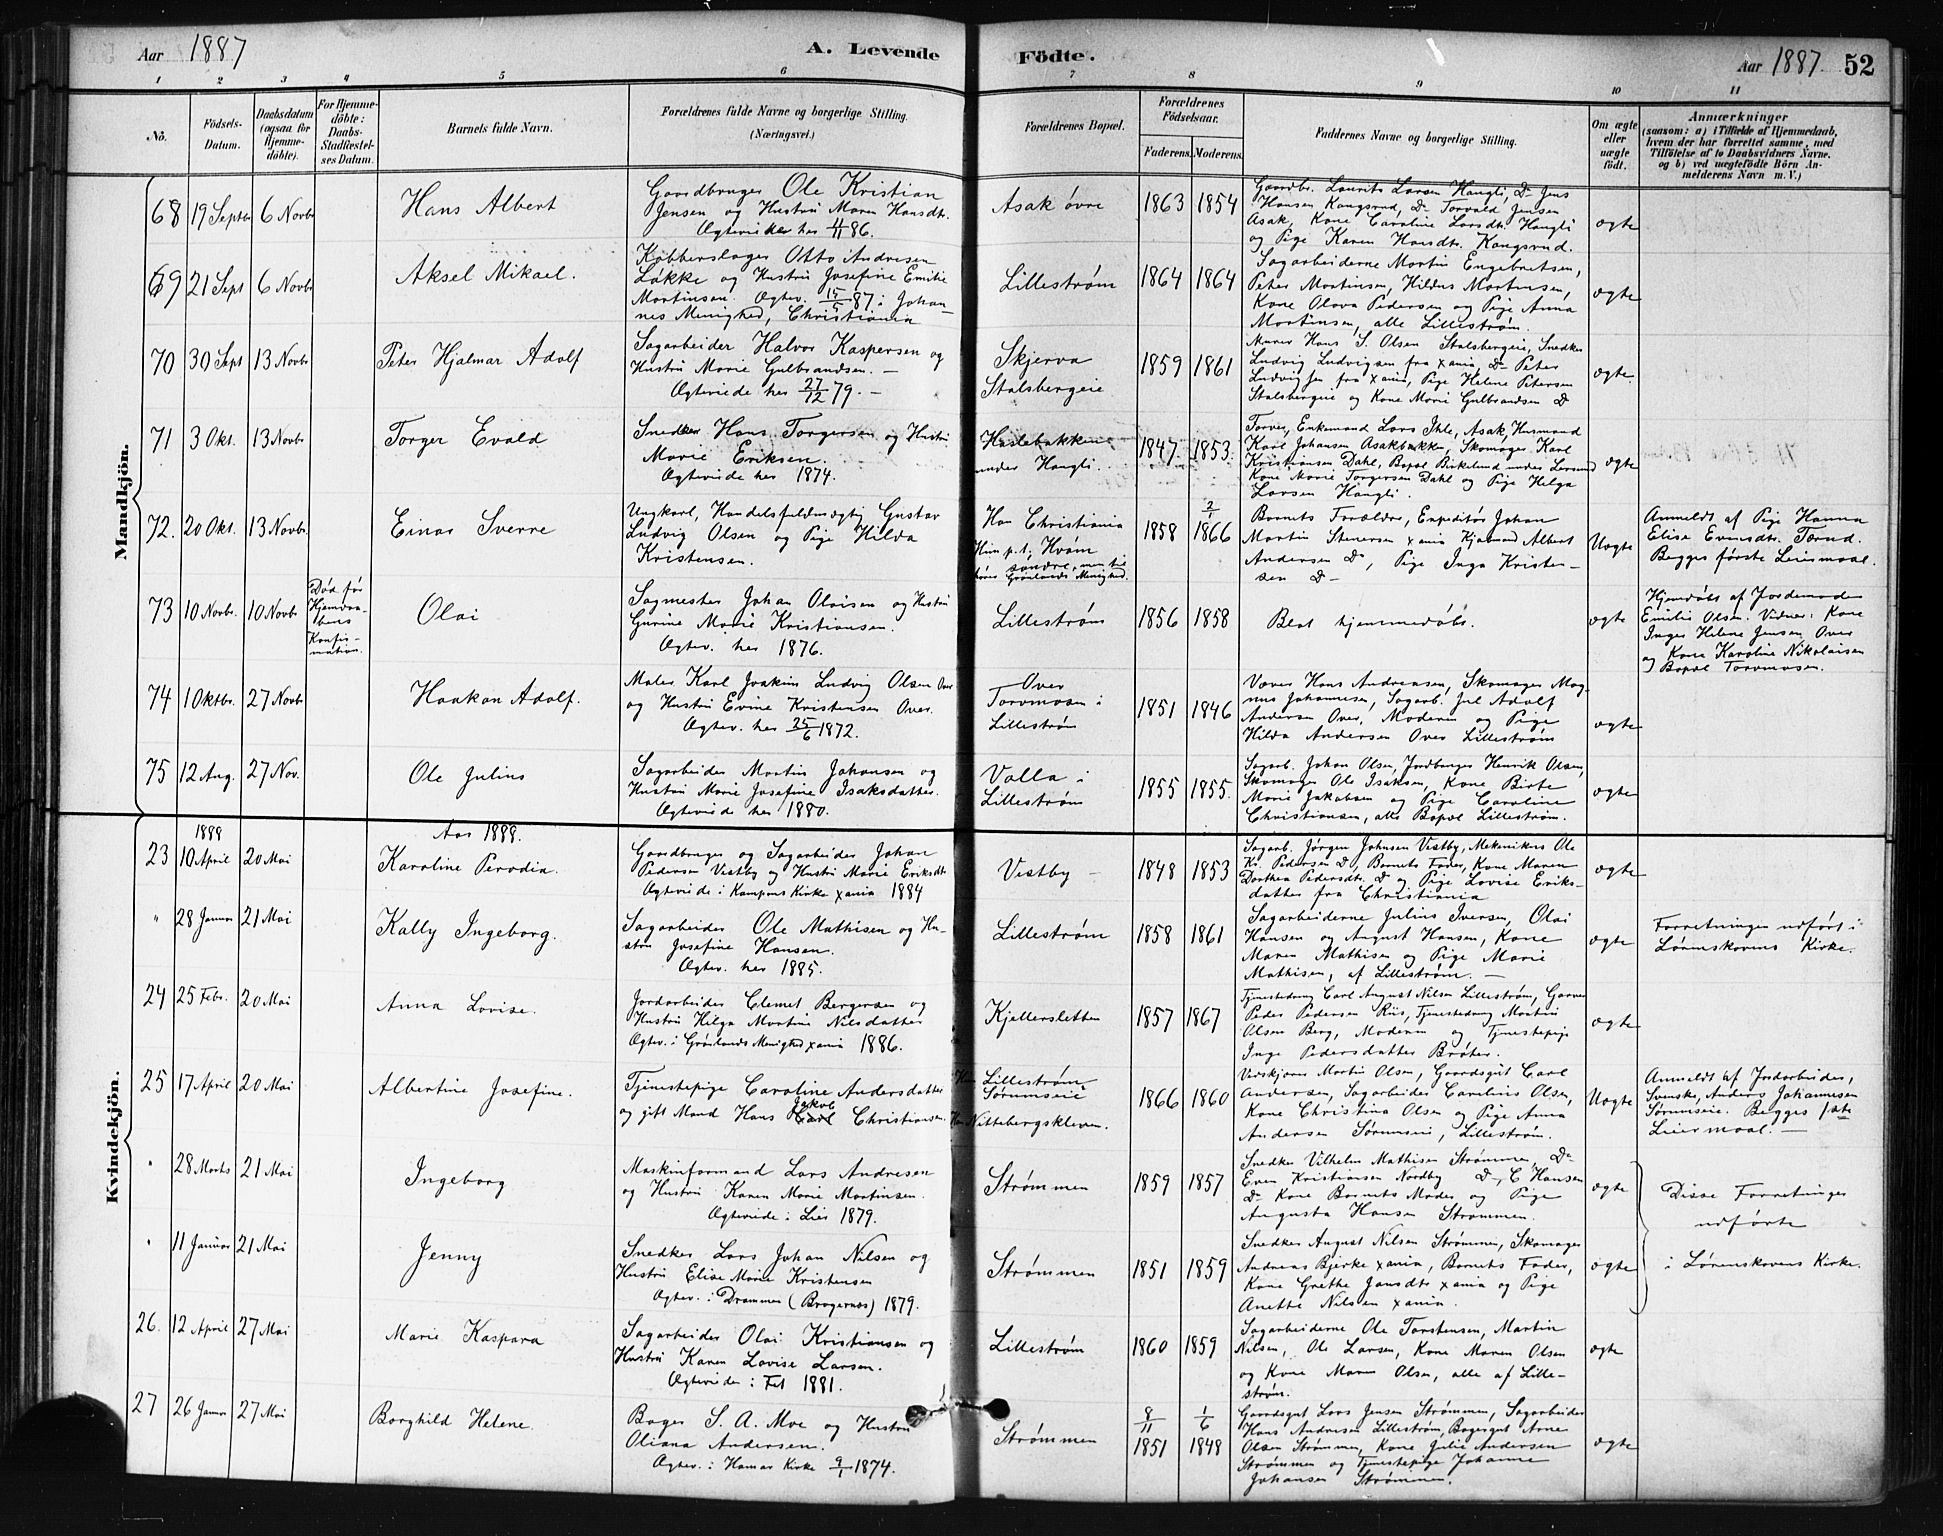 Aar 1887
A. Levende
Födte.
Aar 1887.
52
1 2 3 4 5 6 7 8 9 10 11
No.
Födsels-Datum.
Daabsdatum (ogsaa for Hjemme-döbte).
For Hjemme-döbte: Daabs-Stadfæstel-ses Datum.
Barnets fulde Navn.
Forældrenes fulde Navne og borgerlige Stilling. (Næringsvei.)
Forældrenes Bopæl.
Forældrenes Födselsaar.
Faderens. Moderens.
Faddernes Navne og borgerlige Stilling.
Om ægte eller uægte födt.
Anmærkninger
(saasom: a) i Tilfælde af Hjemmedaab,
hvem der har forrettet samme, med
Tilföielse af to Daabsvidners Navne.
og b) ved uægtefödte Börn An-
melderens Navn m. V.)
Mandkjön.
68 19 Septbr 6 Novbr
Hans Albert
Gaardbruger Ole Kristian
Jensen og Hustru Maren Hansdtr.
Ægteviede her 4/11 86.
Asak øvre
1863 1854
Gaardbr. Laurits Larsen Haugli, Do Jens
Hansen Kongsrud, Do Torvald Jensen
Asak, Kone Caroline Larsdtr. Haugli
og Pige Karen Hansdtr. Kongsrud.
ægte
69 21 Sept 6 Novbr
Aksel Mikael.
Kobberslager Otto Andresen
Løkke og Hustru Josefine Emilie
Martinsen. Ægtev. 15/5 87 i Johan-
nes Menighed, Christiania
Lillestrøm
1864 1864
Sagarbeiderne Martin Engebretsen,
Peter Martinsen, Hildus Martinsen,
Kone Olava Pedersen og Pige Anna
Martinsen, alle Lillestrøm.
ægte
70 30 Sept 13 Novbr
Peter Hjalmar Adolf
Sagarbeider Halvor Kaspersen og
Hustru Marie Gulbrandsen. —
Ægteviede her 27/12 79. —
Skjerva
Stalsbergeie
1859 1861
Murer Hans S. Olsen Stalsbergeie, Snedker
Ludvig Ludvigsen fra xania, Do Peter
Ludvigsen fra xania, Pige Helene Petersen
Stalsbergeie og Kone Marie Gulbrandsen Do
ægte.
71 3 Okt. 13 Novbr
Torger Evald
Snedker Hans Torgersen og Hustru
Marie Eriksen.
Ægteviede her 1874.
Haslebakken
under Haugli.
1847. 1853.
Farver, Enkemand Lars Ihle, Asak, Husmand
Karl Johansen Asakbakke, Skomager Karl
Kristiansen Dahl, Bopæl Birkelund under
Kone Marie Torgersen Dahl og Pige Helga
Larsen Haugli.
ægte
72. 20 Okt. 13 Novbr.
Einar Sverre
Ungkarl, Handelsfuldmægtig Gustav
Ludvig Olsen og Pige Hilda
Kristensen.
Han Christiania
Hun p.t. Hvam
søndre, men til
hører Grønlands Menighed.
1858 2/1 1866
Barnets Forældre, Expeditør Johan
Martin Stenersen xania Hjalmar Albert
Andersen Do, Pige Inga Kristen-
sen Do
Uægte
Anmeldt af Pige Hanna
Elise Evensdtr. Torud.
Begges første Leiermaal.
73 10 Novbr. 10 Novbr.
Død før
Hjemdaa-
bens
Konfir-
mation.
Olai
Sagmester Johan Olaisen og Hustru
Gurine Marie Kristiansen.
Ægtev. her 1876.
Lillestrøm
1856 1858
Blot hjemmedøbt.
ægte
Hjemdøbt af Jordemoder
Emilie Olsen. Vidner: Kone
Inger Helene Jensen Over
og Kone Karoline Nikolaisen
Bopæl Torvmosen.
74 1 Oktbr. 27 Novbr
Haakon Adolf.
Maler Karl Joakim Ludvig Olsen Over
og Hustru Evine Kristensen Over.
Ægtev. her 25/6 1872.
Over
Torvmosen i
Lillestrøm
1851 1846
Væver Hans Andreasen, Skomager Mag-
nus Johannesen, Sagarb. Jul Adolf
Andersen Over, Moderen og Pige
Hilda Andersen Over Lillestrøm
ægte
75 12 Aug. 27 Nov.
Ole Julius
Sagarbeider Martin Johansen og
Hustru Marie Josefine Isaksdatter.
Ægteviede her 1880.
Volla i
Lillestrøm
1855 1855.
Sagarb. Johan Olsen, Jordbruger Henrik Olsen,
Skomager Ole Isaksen, Kone Birte
Marie Jakobsen og Pige Caroline
Christiansen, alle Bopæl Lillestrøm.
ægte
Kvindekjön.
Aar 1888.
1888
23 10 April 20 Mai
Karoline Perodia.
Gaardbruger og Sagarbeider Johan
Pedersen Vestby og Hustru Marie Eriksdtr
Ægteviede i Kampens Kirke xania 1884
Vestby —
1848 1853
Sagarb. Jørgen Johnsen Vestby, Mekanikus Ole
Kr. Pedersen Do, Barnets Fader, Kone Maren
Dorthea Pedersdtr. Do og Pige Lovise Eriks-
datter fra Christiania
ægte
" 28 Januar 21 Mai
Kally Ingeborg.
Sagarbeider Ole Mathisen og Hu-
stru Josefine Hansen.
Ægtev. her 1885.
Lillestrøm
1858 1861
Sagarbeiderne Julius Iversen, Olai
Hansen og August Hansen, Kone
Maren Mathisen og Pige Marie
Mathisen, af Lillestrøm. —
ægte
Forretningen udført i
Lørenskovens Kirke.
24 25 Febr. 20 Mai
Anna Lovise.
Jordarbeider Clemet Bergersen og
Hustru Helga Martine Nilsdatter
Ægtev. i Grønlands Menighed xania 1886.
Kjellersletten
1857 1867
Tjenestedreng Carl August Nilsen Lillestrøm, Garver
Peder Pedersen Riis, Tjenestedreng Martin
Olsen Berg, Moderen og Tjenestepige
Inge Pedersdatter Bråter.
ægte
25 17 April 20 Mai
Albertine Josefine.
Tjenestepige Caroline Andersdatter
og gift Mand Hans Jakob Christiansen.
Hun Lillestrøm
Sørumseie
Han Nittebergskleven.
1866 1860
Vedskjærer Martin Olsen, Gaardsgut Carl
Andersen, Sagarbeider Carelius Olsen,
Kone Christina Olsen og Pige Anna
Andersen Sørumseie, Lillestrøm.
Uægte
Anmeldt af Jordarbeider,
Svenske, Anders Johannesen
Sørumseie. Begges 1ste
Leiermaal. —
" 28 Marts 21 Mai
Ingeborg
Maskinformand Lars Andresen
og Hustru Karen Marie Martinsen.
Ægteviede i Lier 1879.
Strømmen
1859 1857
Snedker Vilhelm Mathisen Strømmen, Do
Even Kristiansen Nordby Do, C Hansen
Do Kone Barnets Moder og Pige
Augusta Hansen Strømmen.
ægte
Disse Forretninger
udførte
i Lørenskovens Kirke.
" 11 Januar 21 Mai
Jenny
Snedker Lars Johan Nilsen og
Hustru Elise Marie Kristensen
Ægtev. i Drammen (Bragernæs) 1879.
Strømmen
1851 1859
Snedker August Nilsen Strømmen, Skomager
Andreas Bjerke xania, Barnets Fader,
Kone Grethe Jansdtr xania og Pige
Anette Nilsen xania.
ægte
26. 12 April 27 Mai
Marie Kaspara
Sagarbeider Olai Kristiansen og
Hustru Karen Lovise Larsen.
Ægteviede i Fet 1881.
Lillestrøm
1860 1859
Sagarbeiderne Ole Torstensen, Martin
Nilsen, Ole Larsen, Kone Maren Olsen
og Kone Maren Olsen, alle af Lille-
strøm.
ægte
27 26 Januar 27 Mai
Borghild Helene.
Bager S. A. Moe og Hustru
Oliana Andersen.
Ægtev. i Hamar Kirke 9/1 1874.
Strømmen
8/11 1851 1/6 1848
Gaardsgut Lars Jensen Strømmen, Sagarbeider
Hans Andresen Lillestrøm, Bagergut Arne
Olsen Strømmen, Kone Julie Andersen
Strømmen og Tjenestepige Johanne
Johansen Strømmen.
ægte